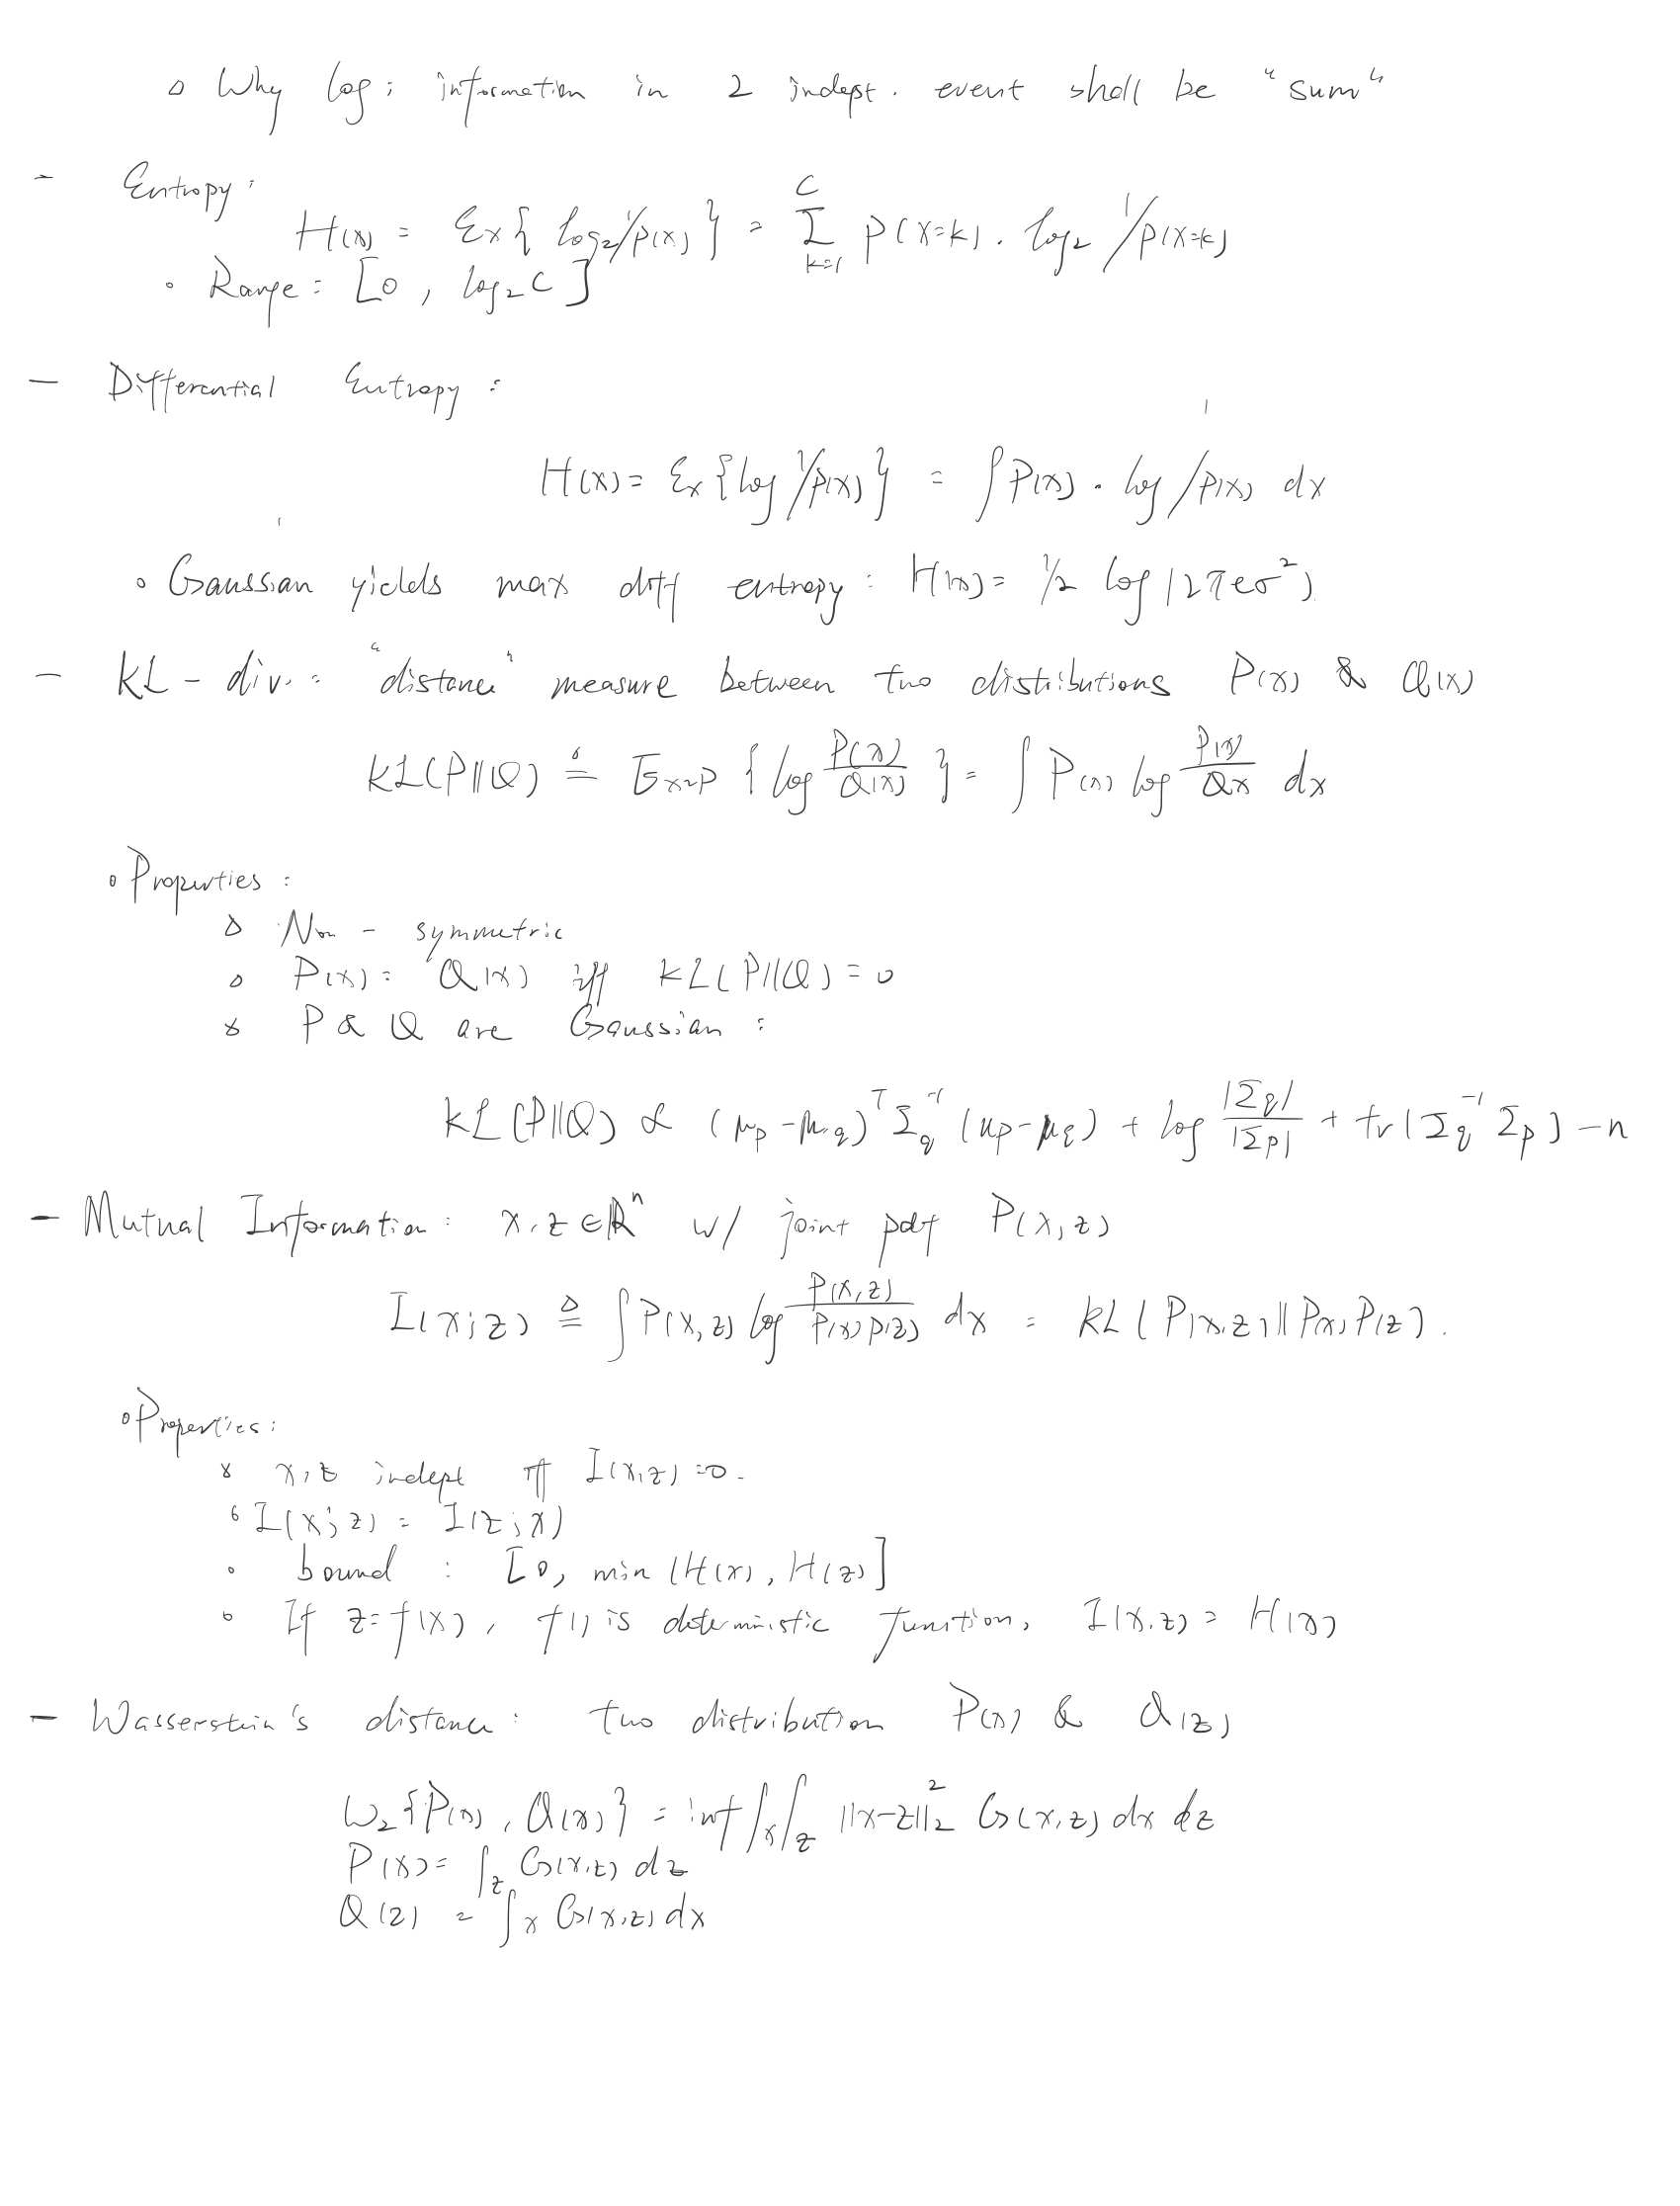 ▵ Why log : information in 2 indept. event shall be "sum"
- Entropy :
H(x) = Ex{ log₂ 1/p(x) } = Σ_{k=1}^{C} P(x=k) · log₂ 1/p(x=k)
◦ Range : [0 , log₂ C ]
- Differential Entropy :
H(x) = Ex{ log 1/p(x) } = ∫ P(x) · log 1/p(x) dx
◦ Gaussian yields max diff entropy : H(x) = 1/2 log(2πeσ²)
- KL - div. : "distance" measure between two distributions P(x) & Q(x)
KL(P||Q) ≜ E_{x~P} { log P(x)/Q(x) } = ∫ P(x) log P(x)/Qx dx
◦ Properties :
▵ Non - symmetric
▵ P(x) = Q(x) iff KL(P||Q) = 0
▵ P & Q are Gaussian :
KL(P||Q) ∝ (μp - μq)ᵀ Σq⁻¹ (μp - μq) + log |Σq|/|Σp| + tr(Σq⁻¹ Σp) - n
- Mutual Information : x, z ∈ ℝⁿ w/ joint pdf P(x, z)
I(x; z) ≜ ∫ P(x, z) log P(x, z)/P(x) p(z) dx = KL( P(x, z) || P(x) P(z) ).
◦ Properties :
▵ x, z indept iff I(x, z) = 0.
◦ I(x; z) = I(z; x)
◦ bound : [0, min (H(x), H(z)]
◦ If z = f(x), f() is deterministic function, I(x, z) = H(x)
- Wasserstein's distance : two distribution P(x) & Q(z)
W₂{P(x), Q(x)} = inf ∫x ∫z ||x-z||₂² G(x, z) dx dz
P(x) = ∫z G(x, z) dz
Q(z) = ∫x G(x, z) dx